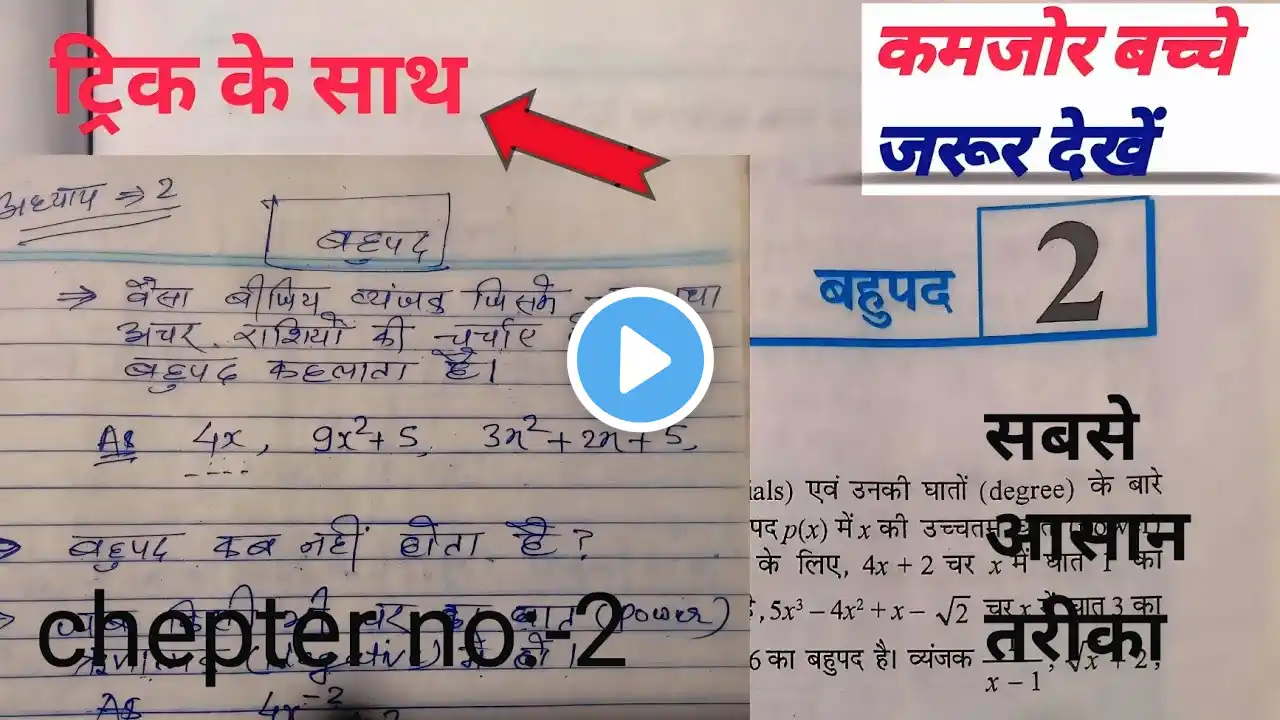 ट्रिक के साथ
कमजोर बच्चे
जरूर देखें
अध्याय ⇒ 2
बहुपद
⇒ वैसा बीजिय व्यंजक जिसमे
अचर राशियों की चर्चाए
बहुपद कहलाता है।
As 4x, 9x²+5, 3x²+2x+5,
बहुपद कब नहीं होता है?
(power)
chepter no -2
As 4x⁻²
बहुपद 2
सबसे
आसान
तरीका
ials) एवं उनकी घातों (degree) के बारे
पद p(x) में x की उच्चतम
के लिए, 4x + 2 चर x में घात 1 का
, 5x³ – 4x² + x – √2 चर x में घात 3 का
6 का बहुपद है। व्यंजक 1/(x – 1), √x + 2,